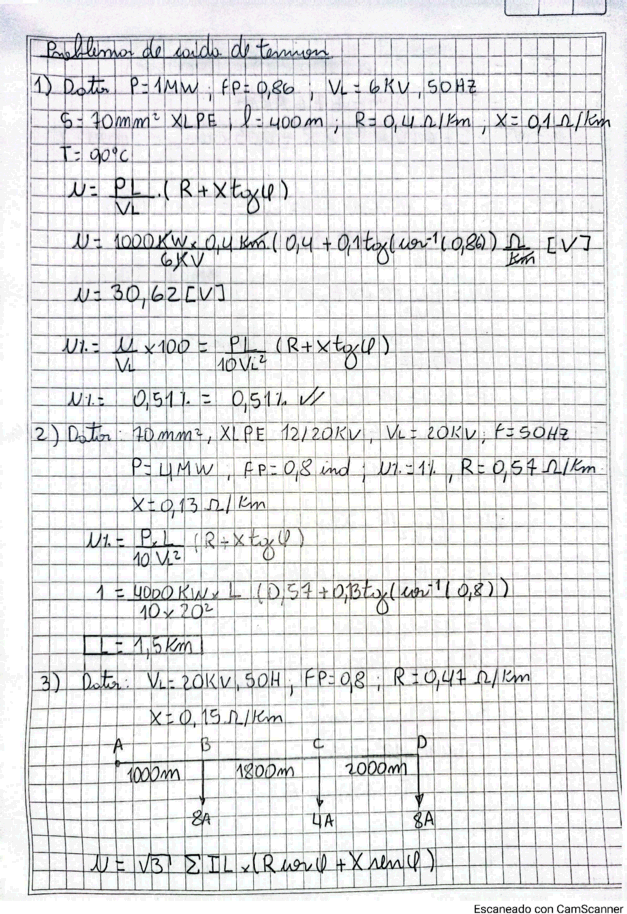 Problemas de caida de tension
1) Datos P=1MW ; FP=0,86 ; VL=6KV, 50HZ
S=70mm² XLPE , l=400m ; R=0,4 Ω/Km , X=0,1 Ω/Km
T=90°C
u= PL/VL . (R+Xtgφ)
u= 1000KW x 0,4 Km/6KV (0,4 + 0,1tg(cos⁻¹(0,86)) Ω/Km [V]
u= 30,62[V]
u%= u/VL x100 = PL/10VL² (R+Xtgφ)
u%= 0,51% = 0,51% ✓✓
2) Datos: 70mm², XLPE 12/20KV, VL=20KV, f=50HZ
P=4MW , FP=0,8 ind ; u%=1% , R=0,57 Ω/Km
X=0,13 Ω/Km
u%= P.L/10VL² (R+Xtgφ)
1 = 4000KWx L/10x20² (0,57+0,13tg(cos⁻¹(0,8))
L= 1,5Km
3) Datos: VL=20KV, 50H , FP=0,8 ; R=0,47 Ω/Km
X=0,15 Ω/Km
A B C D
1000m 1800m 2000m
8A 4A 8A
u= √3 Σ IL x(Rcosφ + Xsenφ)
Escaneado con CamScanner